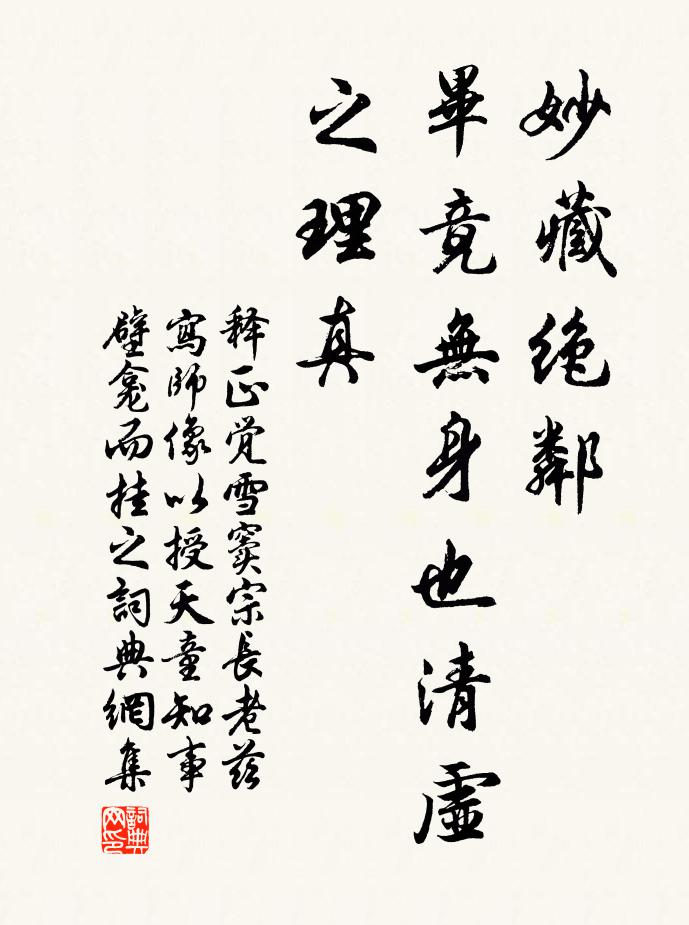 妙藏绝鄰
畢竟無身也清虛
之理真
释正觉雪窦宗長老兹
寫師像以授天童知事
壁龛而挂之詞典網集
詞典网印